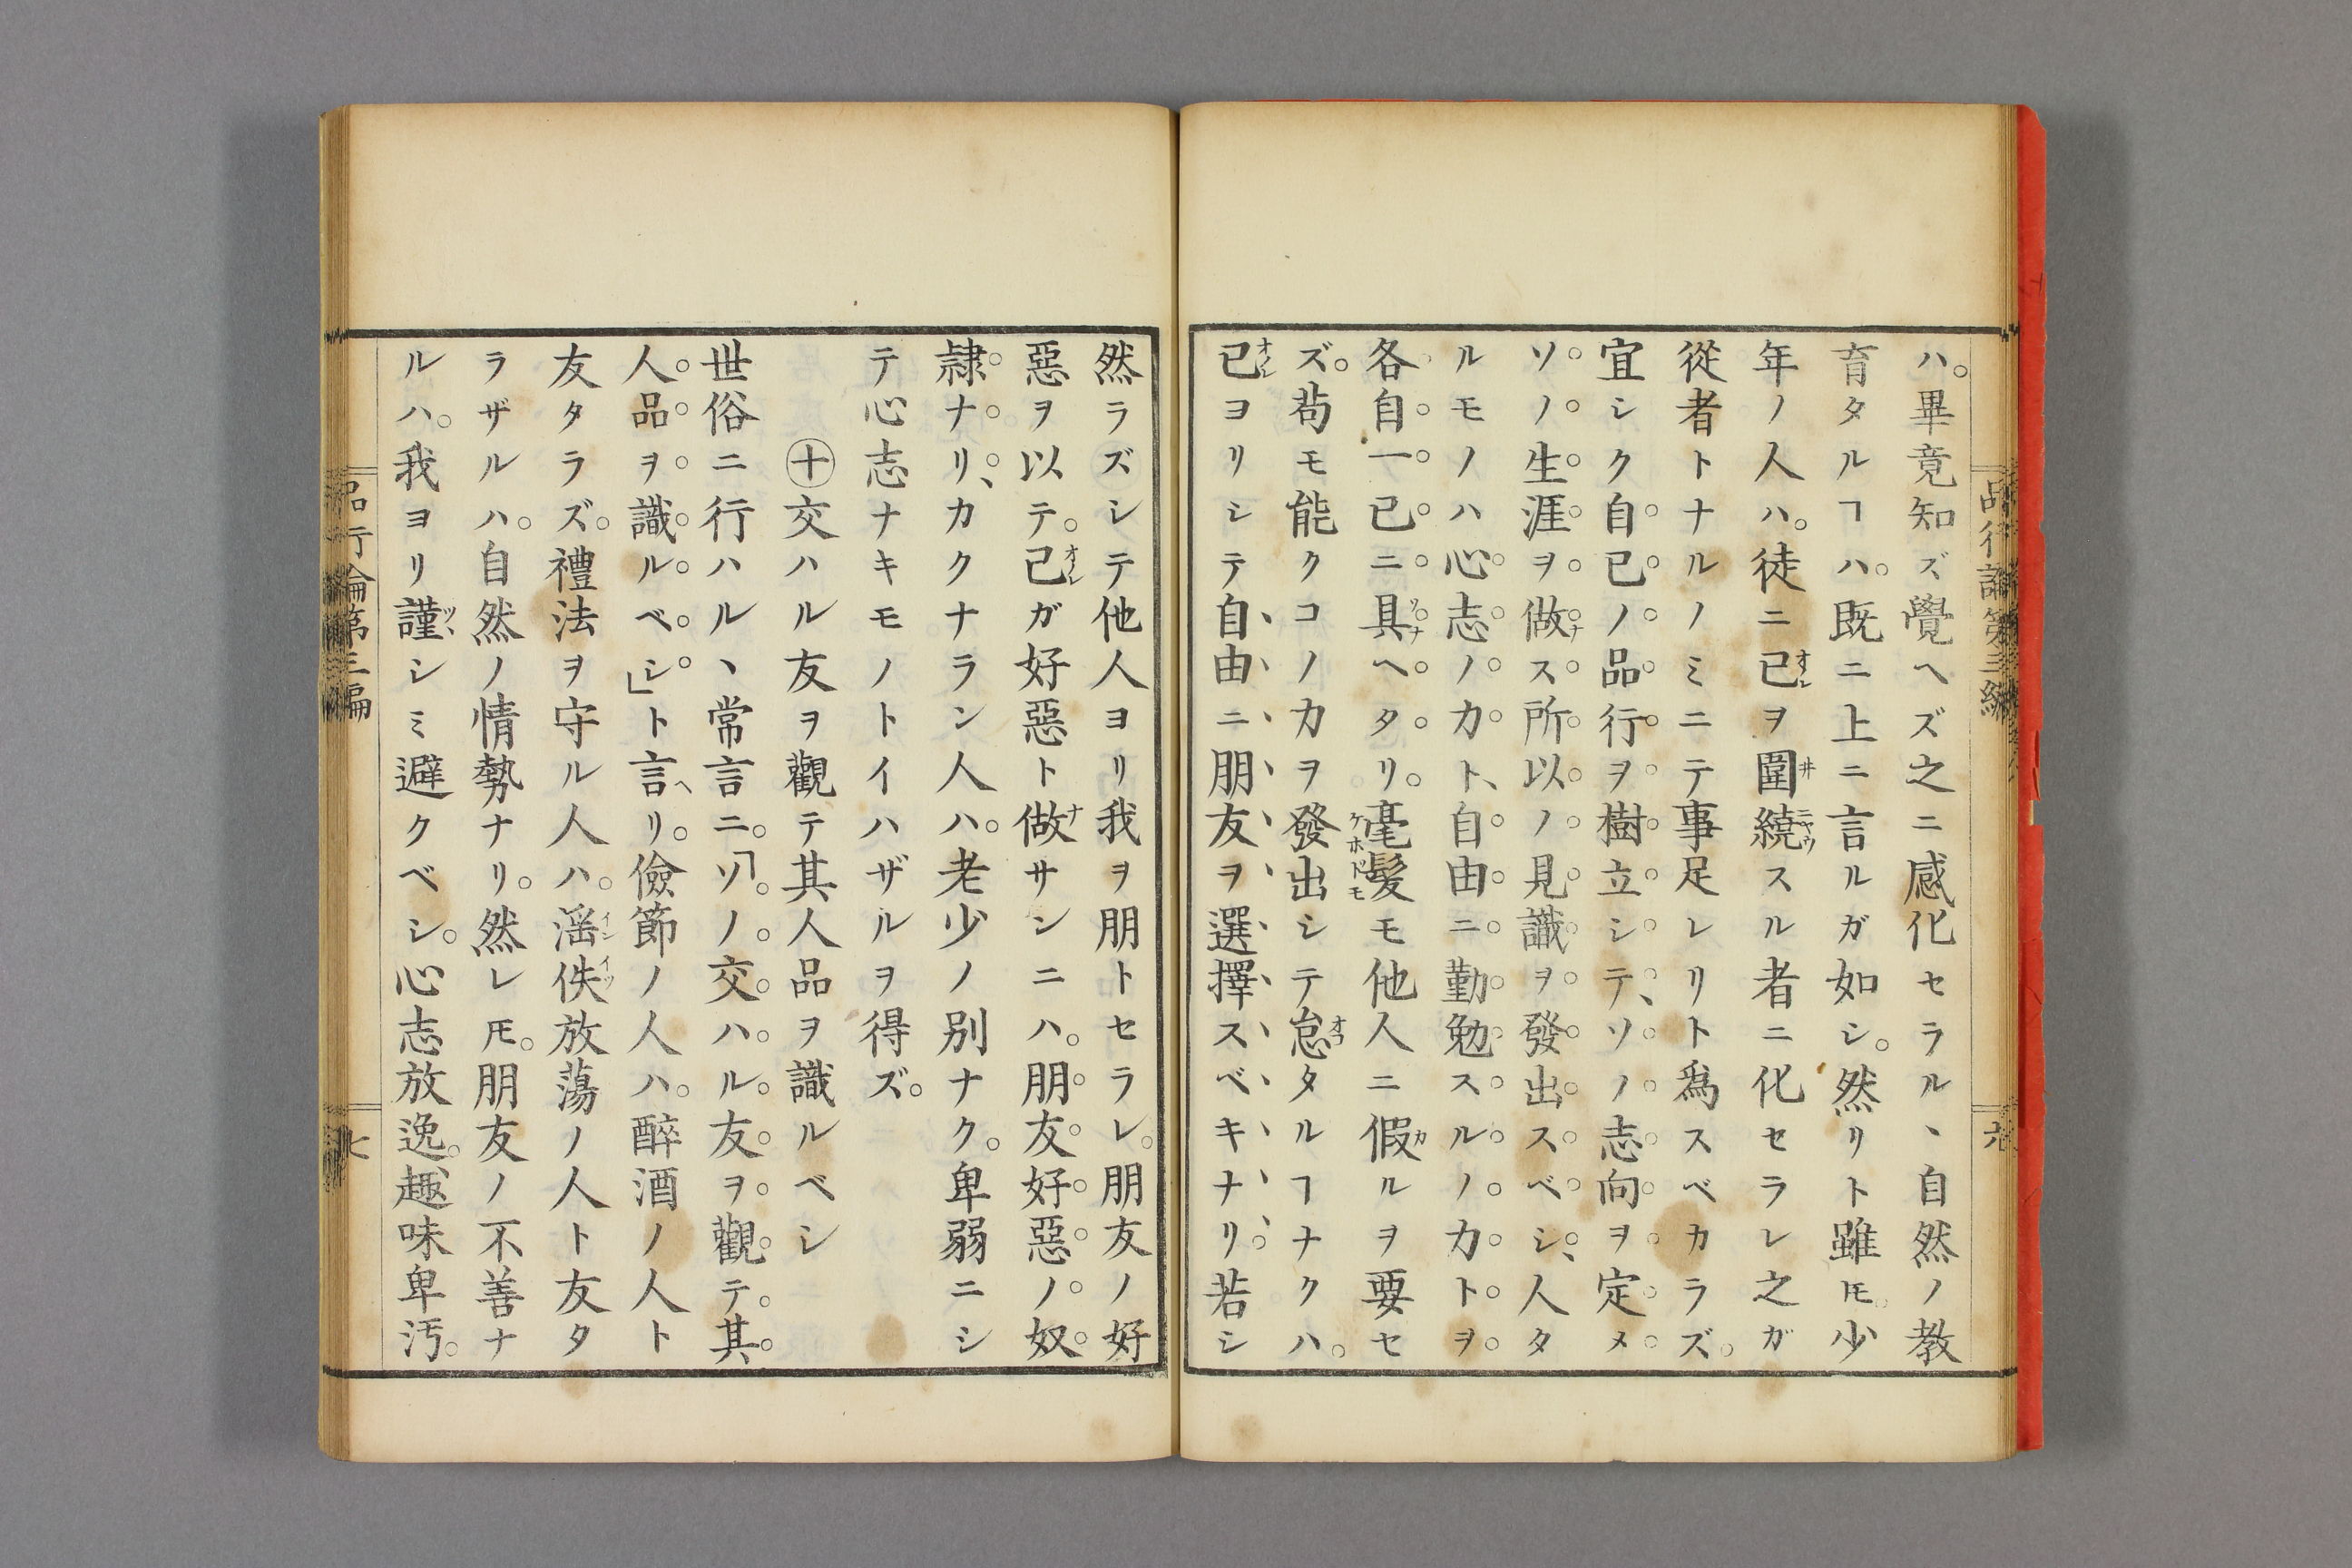 ハ。畢竟知ズ覺ヘズ之ニ感化セラルヽ自然ノ教
育タルヿハ。既ニ上ニ言ルガ如シ。然リト雖𪜈。少
年ノ人ハ。徒ニ己ヲ圍繞スル者ニ化セラレ之ガ
從者トナルノミニテ事足レリト爲スベカラズ。
宜シク自己ノ品行ヲ樹立シテ、ソノ志向ヲ定メ
ソノ生涯ヲ做ス所以ノ見識ヲ發出スベシ、人タ
ルモノハ心志ノ力ト、自由ニ勤勉スルノ力トヲ
各自一己ニ具ヘタリ。毫髮モ他人ニ假ルヲ要セ
ズ。苟モ能クコノ力ヲ發出シテ怠タルヿナクハ。
己ヨリシテ自由ニ朋友ヲ選擇スベキナリ。若シ
品行論第三編
六
然ラズシテ他人ヨリ我ヲ朋トセラレ。朋友ノ好
惡ヲ以テ。己ガ好惡ト做サンニハ。朋友好惡ノ奴
隷ナリ、カクナラン人ハ。老少ノ別ナク。卑弱ニシ
テ心志ナキモノトイハザルヲ得ズ。
㊉交ハル友ヲ觀テ其人品ヲ識ルベシ
世俗ニ行ハルヽ常言ニ。「ソノ交ハル友ヲ觀テ其
人品ヲ識ルベシ」ト言ヘリ。儉節ノ人ハ。醉酒ノ人ト
友タラズ。禮法ヲ守ル人ハ。淫佚放蕩ノ人ト友タ
ラザルハ。自然ノ情勢ナリ。然レ𪜈。朋友ノ不善ナ
ルハ。我ヨリ謹シミ避クベシ。心志放逸。趣味卑汚。
品行論第三編
七